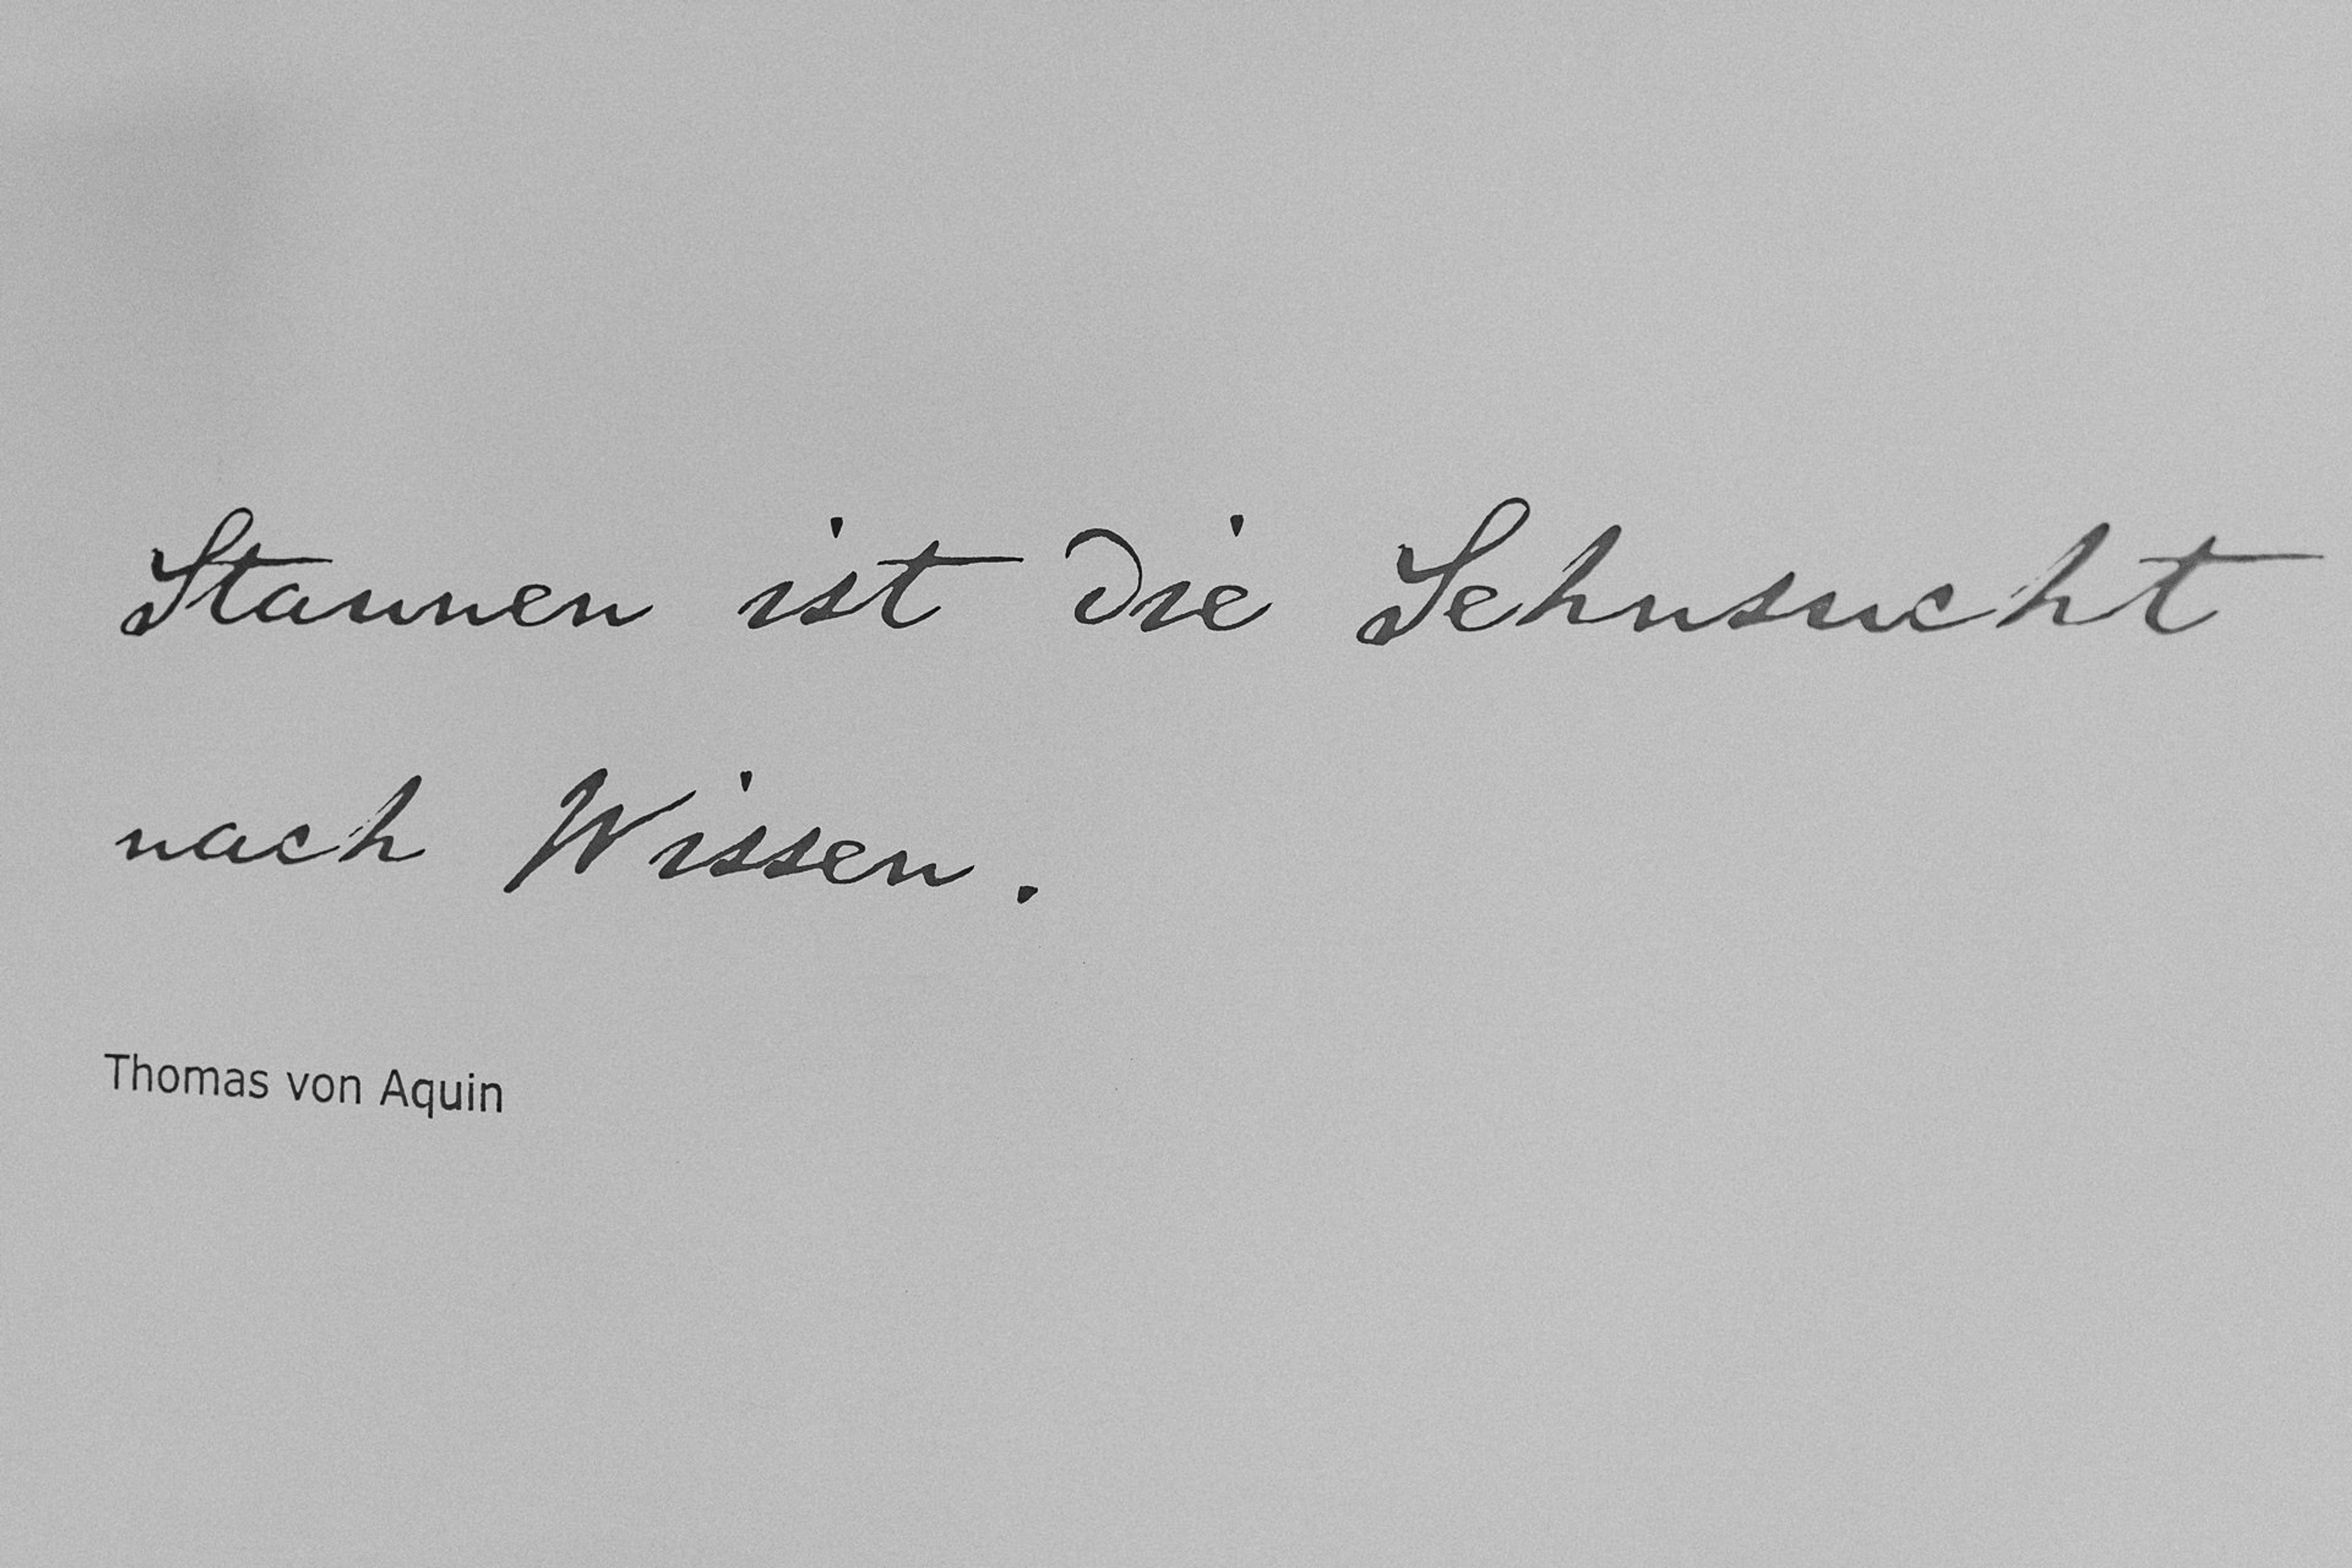 Staunen ist die Sehnsucht
nach Wissen.
Thomas von Aquin